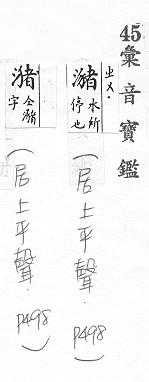 45彙音寶鑑
ㄓㄨ.
瀦 水所停也
(居上平聲.P498)
瀦 仝瀦字
(居上平聲.P498)